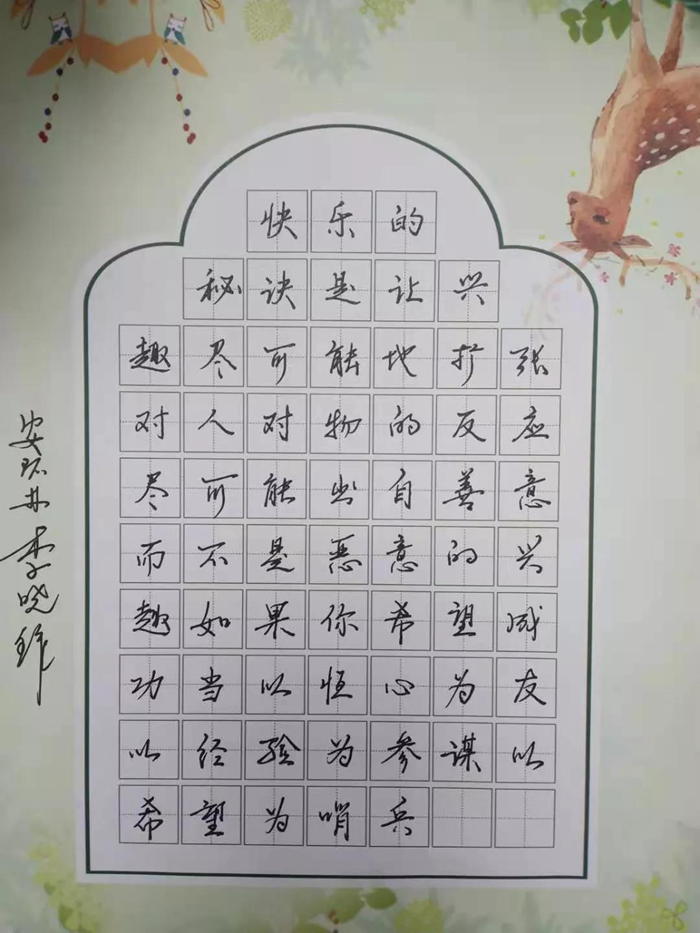 快乐的
秘诀是让兴
趣尽可能地扩张
对人对物的反应
尽可能出自善意
而不是恶意的兴
趣如果你希望成
功当以恒心为友
以经验为参谋以
希望为哨兵
李晓